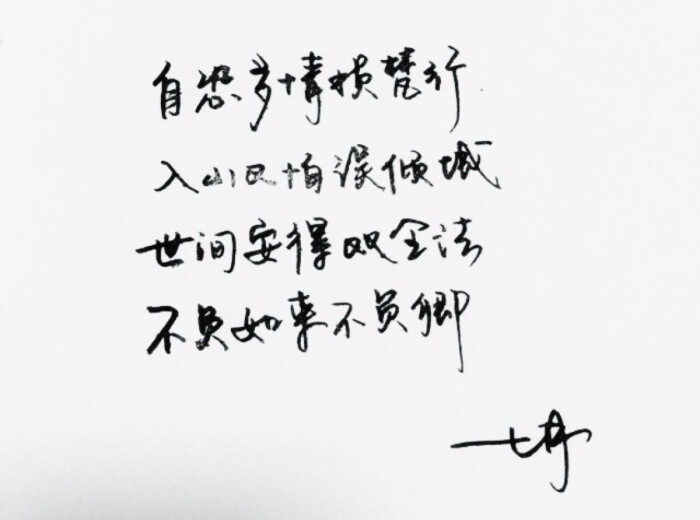 自恐多情损梵行
入山又怕误倾城
世间安得双全法
不负如来不负卿